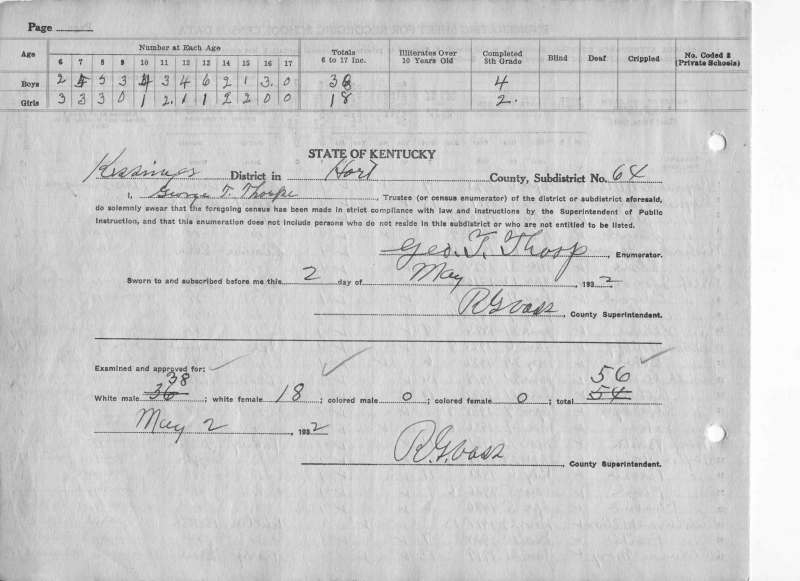 Page
Age Number at Each Age Totals 6 to 17 Inc. Illiterates Over 10 Years Old Completed 8th Grade Blind Deaf Crippled No. Coded 8 (Private Schools)
6 7 8 9 10 11 12 13 14 15 16 17
Boys 2 5 3 4 3 4 6 2 1 3 0 38 4
Girls 3 3 3 0 1 2 1 1 2 2 0 0 18 2
STATE OF KENTUCKY
Kessinger District in Hart County, Subdistrict No. 64
I, George T. Thorpe, Trustee (or census enumerator) of the district or subdistrict aforesaid,
do solemnly swear that the foregoing census has been made in strict compliance with law and instructions by the Superintendent of Public
Instruction, and that this enumeration does not include persons who do not reside in this subdistrict or who are not entitled to be listed.
Geo. T. Thorp, Enumerator.
Sworn to and subscribed before me this 2 day of May, 1932
County Superintendent.
Examined and approved for:
White male 36 38; white female 18; colored male 0; colored female 0; total 54 56
May 2, 1932
County Superintendent.